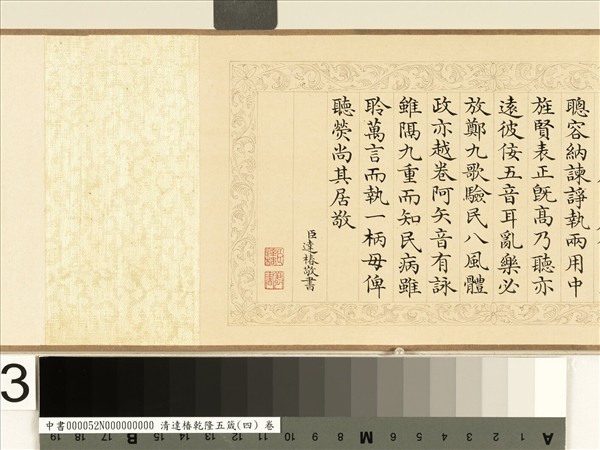 聰容納諫諍執兩用中
旌賢表正旣髙乃聽亦
逺彼佞五音耳亂樂必
放鄭九歌驗民八風體
政亦越卷阿矢音有詠
雖隔九重而知民病雖
聆萬言而執一柄毋俾
聽熒尚其居敬
臣達椿敬書
3
中書000052N000000000 清達椿乾隆五箴(四) 卷
19 18 17 16 15 14 13 12 11 10 9 8 7 6 5 4 3 2 1
B M A